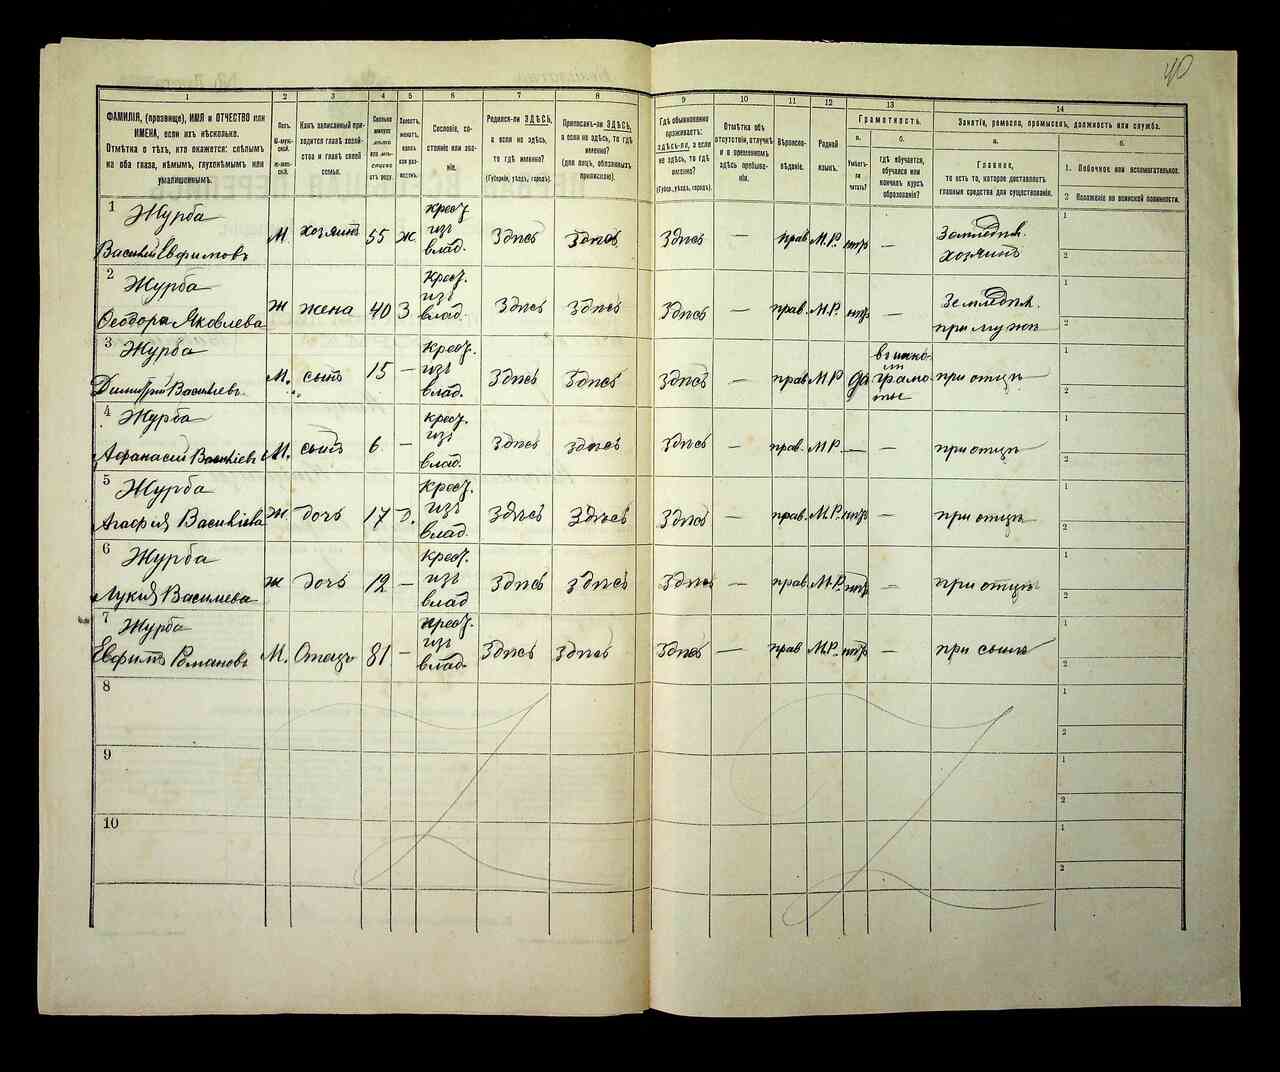 40
1
2
3
4
5
6
7
8
9
10
11
12
13
14
ФАМИЛІЯ, (прозвище), ИМЯ и ОТЧЕСТВО или
ИМЕНА, если ихъ нѣсколько.
Отмѣтка о тѣхъ, кто окажется: слѣпымъ
на оба глаза, нѣмымъ, глухонѣмымъ или
умалишеннымъ.
Полъ.
М-муж-
ской.
Ж-жен-
ской.
Какъ записанный при-
ходится главѣ хозяй-
ства и главѣ своей
семьи.
Сколько
минуло
лѣтъ
или мѣ-
сяцевъ
отъ роду.
Холостъ,
женатъ,
вдовъ
или раз-
веденъ.
Сословіе, со-
стояніе или зва-
ніе.
Родился-ли ЗДѢСЬ,
а если не здѣсь,
то гдѣ именно?
(Губернія, уѣздъ, городъ).
Приписанъ-ли ЗДѢСЬ,
а если не здѣсь, то гдѣ
именно?
(Для лицъ, обязанныхъ
припискою).
Гдѣ обыкновенно
проживаетъ:
здѣсь-ли, а если
не здѣсь, то гдѣ
именно?
(Губерн., уѣздъ, городъ).
Отмѣтка объ
отсутствіи, отлучкѣ
и о временномъ
здѣсь пребыва-
ніи.
Вѣроиспо-
вѣданіе.
Родной
языкъ.
Грамотность.
а.
Умѣетъ-
ли
читать?
б.
гдѣ обучается,
обучался или
кончилъ курсъ
образованія?
Занятіе, ремесло, промыселъ, должность или служба.
а.
Главное,
то есть то, которое доставляетъ
главныя средства для существованія.
б.
1. Побочное или вспомогательное.
2 Положеніе по воинской повинности.
1 Журба
Василій Евфимовъ М. хозяинъ 55 ж крест. изъ влад. Здѣсь Здѣсь Здѣсь — прав М.Р. нѣтъ — Земледѣл. хозяинъ 1 2
2 Журба
Ѳеодора Яковлева Ж жена 40 З крест. изъ влад. Здѣсь Здѣсь Здѣсь — прав. М.Р. нѣтъ — Земледѣл. при мужѣ 1 2
3 Журба
Димитрій Васильевъ М. сынъ 15 — крест. изъ влад. Здѣсь Здѣсь Здѣсь — прав М Р да въ школѣ грамоты при отцѣ 1 2
4 Журба
Афанасій Васильевъ М. сынъ 6 — крест. изъ влад. Здѣсь Здѣсь Здѣсь — прав. М Р. — — при отцѣ 1 2
5 Журба
Агафія Васильева Ж. дочь 17 д. крест. изъ влад. Здѣсь Здѣсь Здѣсь — прав. М.Р. нѣтъ — при отцѣ 1 2
6 Журба
Лукія Васильева ж дочь 12 — крест. изъ влад Здѣсь Здѣсь Здѣсь — прав. М.Р. нѣтъ — при отцѣ 1 2
7 Журба
Евфимъ Романовъ М. Отецъ 81 — крест. изъ влад. Здѣсь Здѣсь Здѣсь — прав М.Р. нѣтъ — при сынѣ 1 2
8 1 2
9 1 2
10 1 2